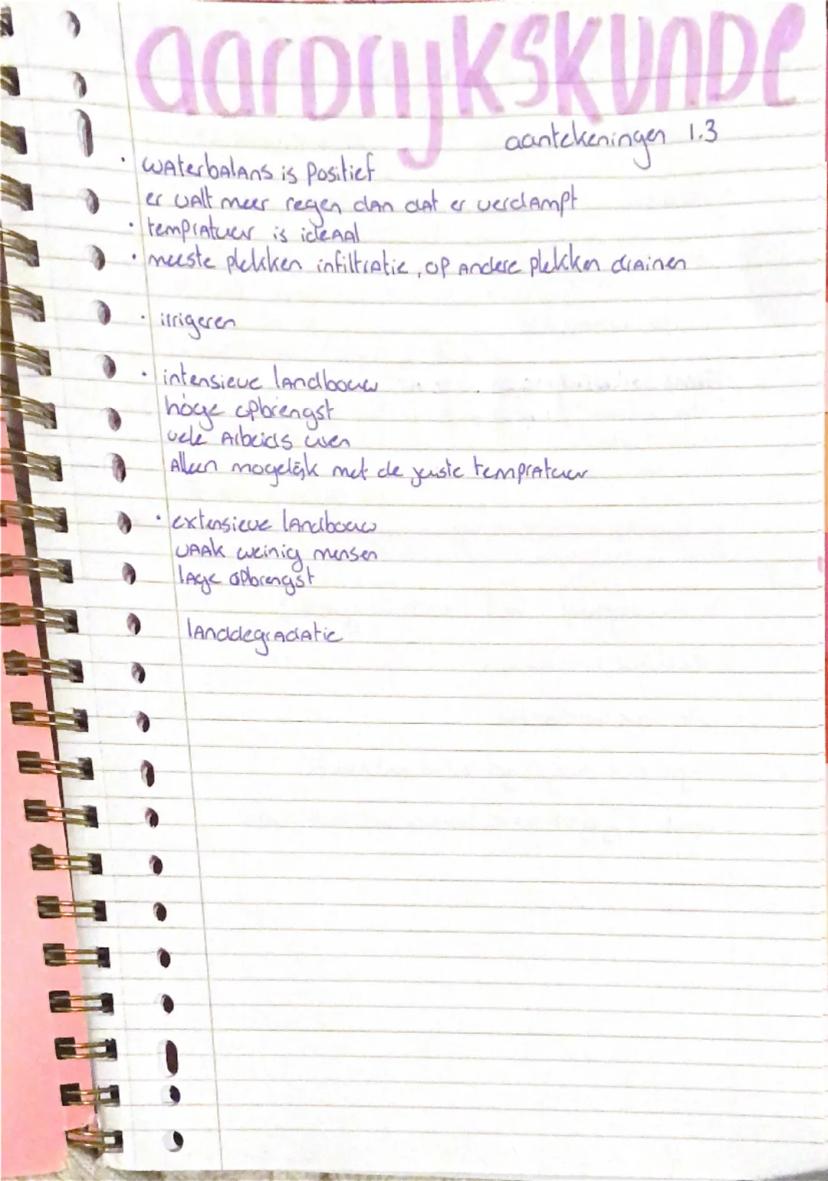 aardrijkskunde
aantekeningen 1.3
· waterbalans is positief
er valt meer regen dan dat er verdampt
· tempratuur is ideaal
· meeste plekken infiltratie, op andere plekken drainen
· irrigeren
· intensieve landbouw
hoge opbrengst
vele Arbeids uren
Alleen mogelijk met de juiste tempratuur
· extensieve landbouw
vaak weinig mensen
lage opbrengst
landdegradatie